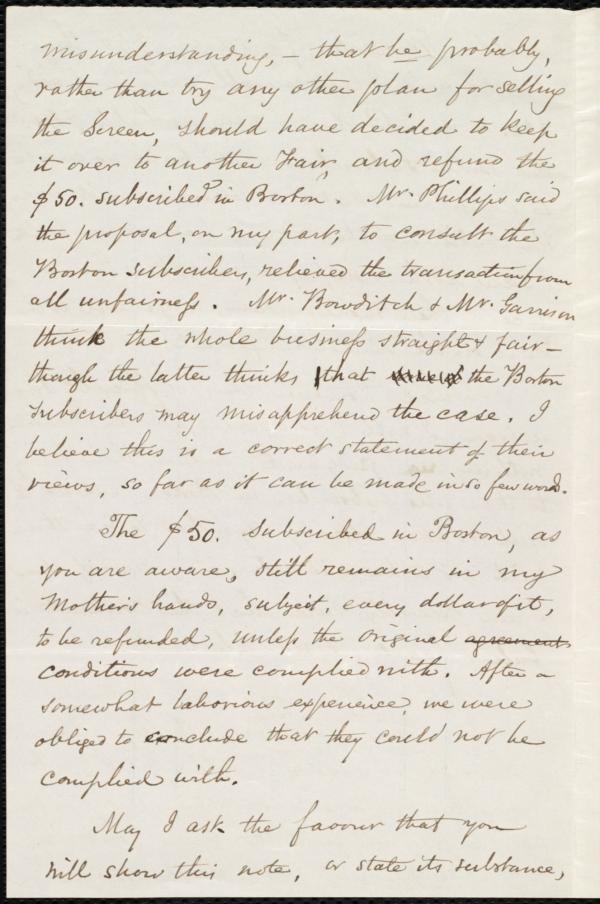 misunderstanding, – that he probably,
rather than try any other plan for selling
the Screen, should have decided to keep
it over to another Fair, and refund the
$50. subscribed in Boston. Mr. Phillips said
the proposal, on my part, to consult the
Boston subscribers, relieved the transaction from
all unfairness. Mr. Bowditch & Mr. Garrison
think the whole business straight & fair –
though the latter thinks that the Boston
subscribers may misapprehend the case. I
believe this is a correct statement of their
views, so far as it can be made in so few words.
The $50. subscribed in Boston, as
you are aware, still remains in my
Mother's hands, subject, every dollar of it,
to be refunded, unless the original agreements
conditions were complied with. After a
somewhat laborious experience, we were
obliged to conclude that they could not be
complied with.
May I ask the favour that you
will show this note, or state its substance,